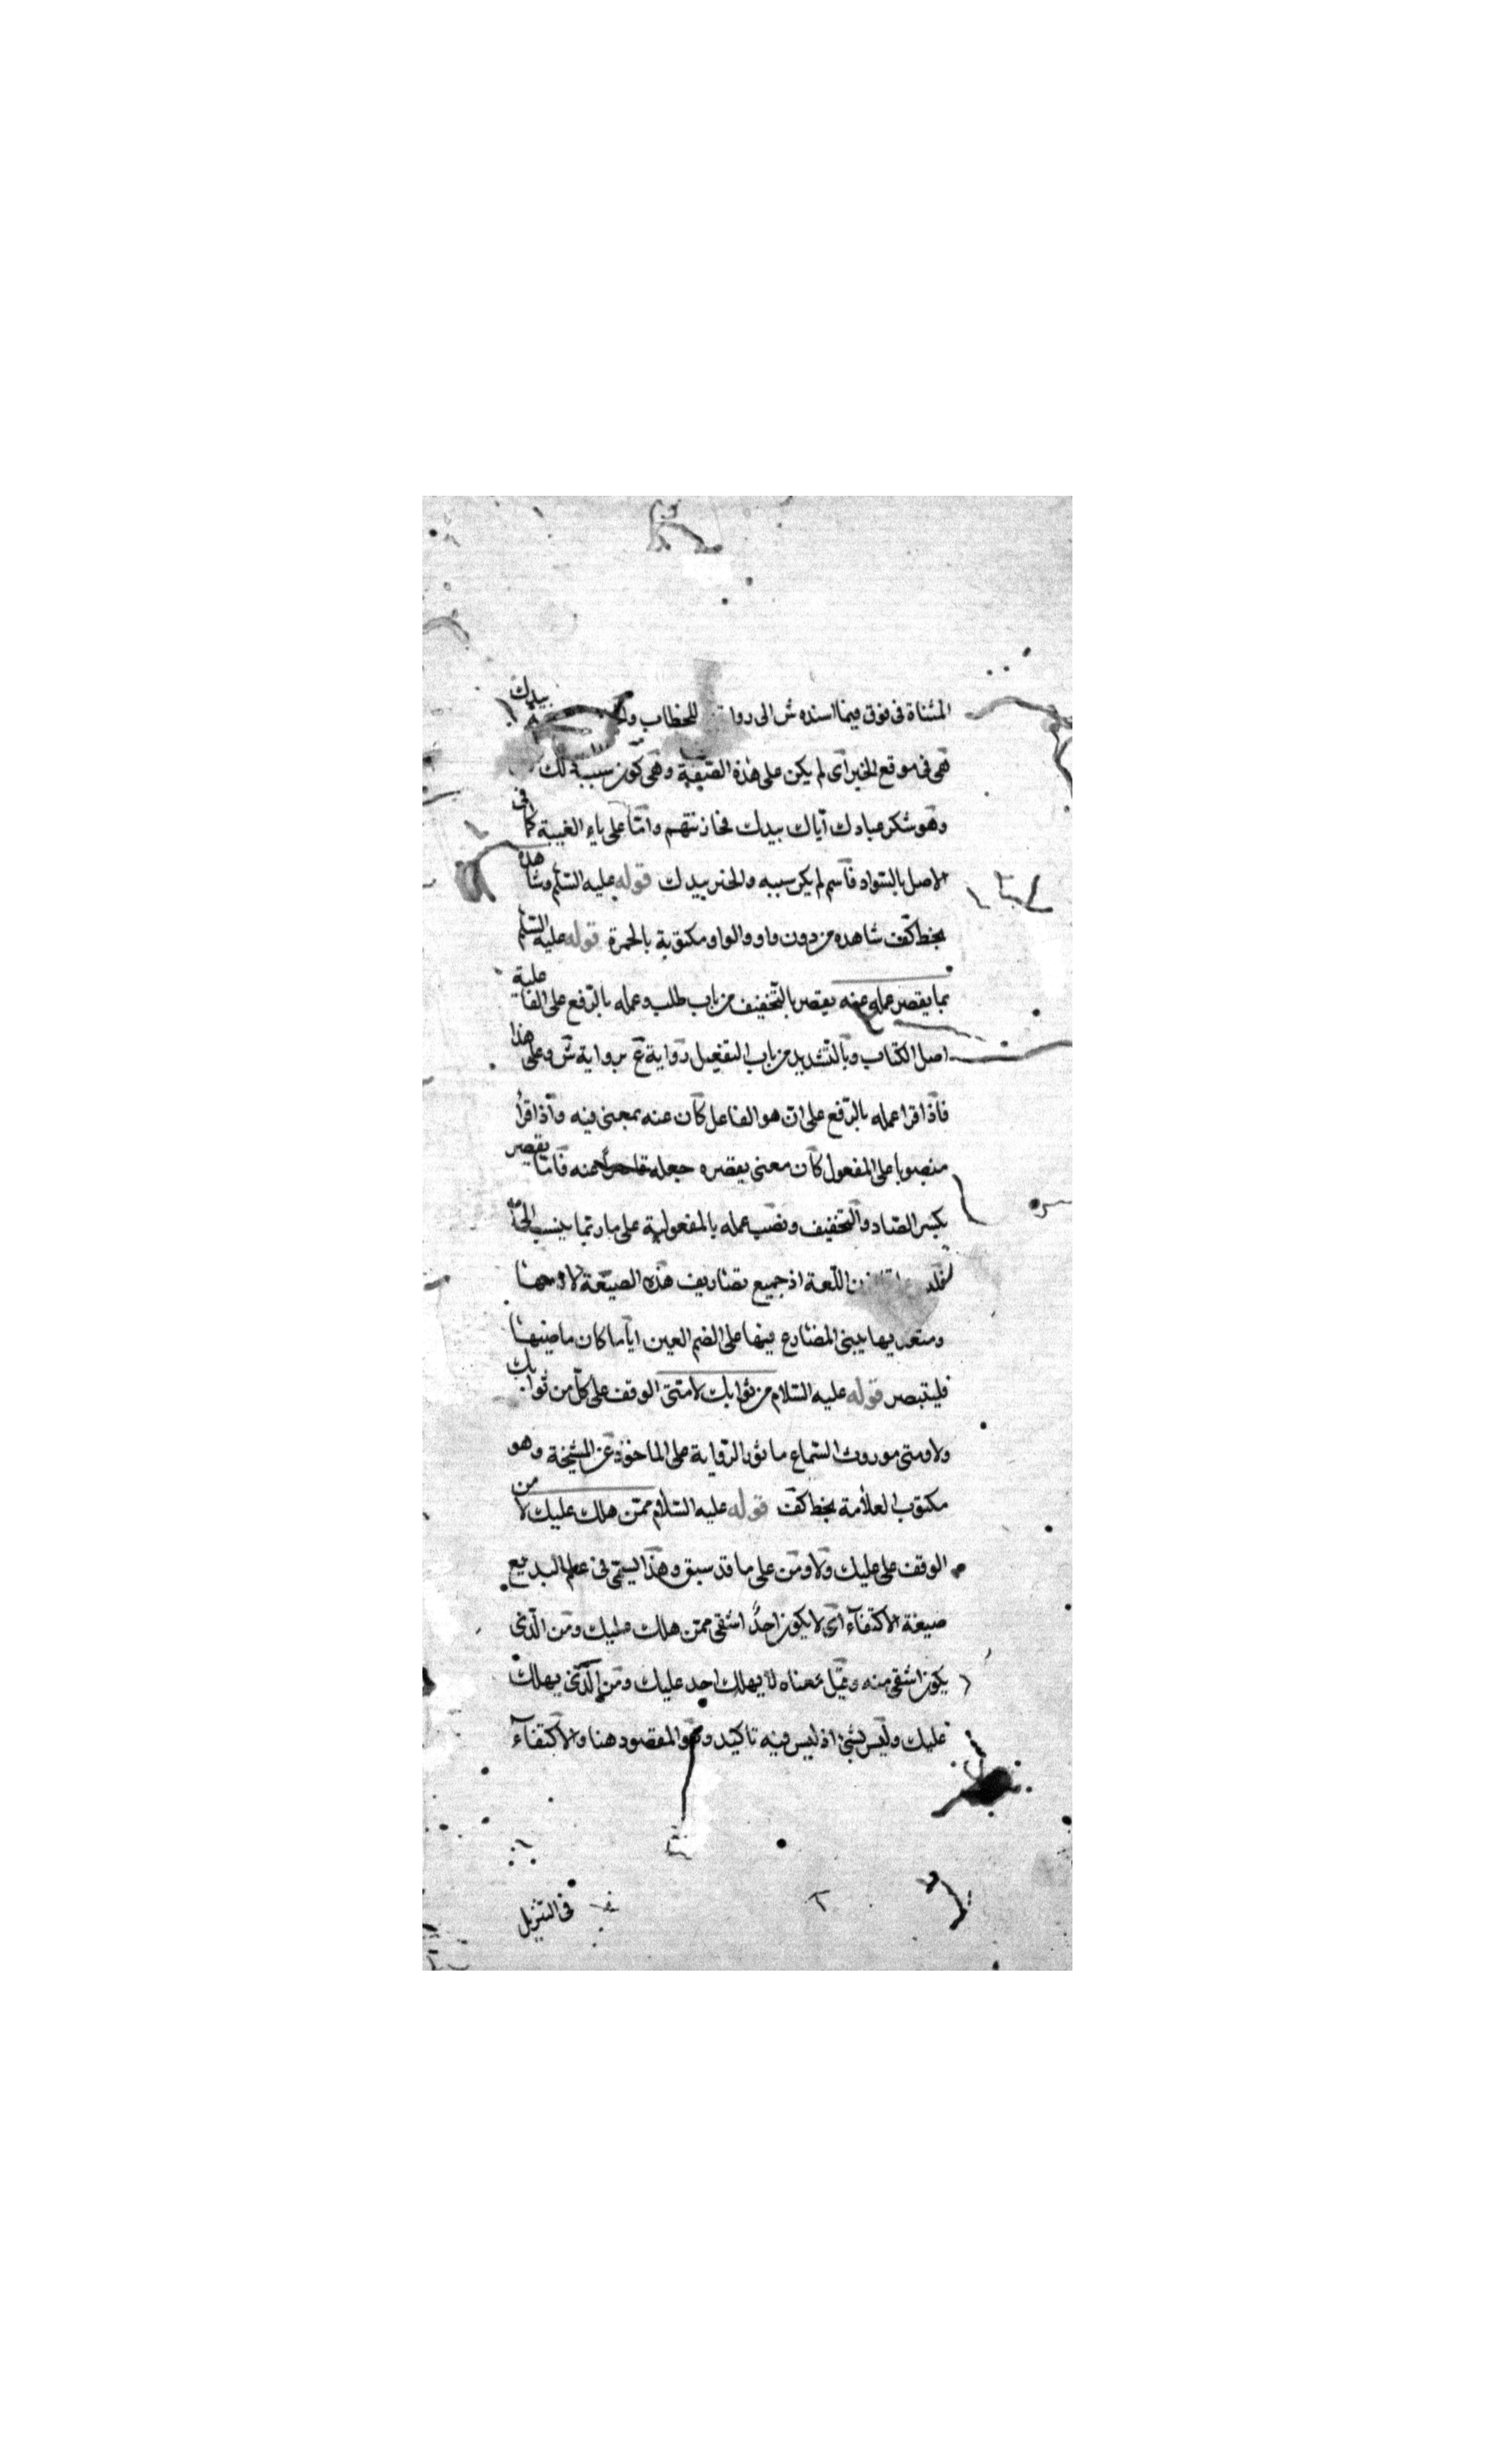 المثناة فى فوق فيما اسنده ش الى روا للخطاب بيدك
هى فى موقع الخبر اى لم يكن على هذة الصيغة وهى كون سببه لك
وهو شكر عبادك اياك بيدك فجازيتهم وامّا على ياء الغيبة كما فى
الاصل بالسواد فاسم لم يكن سببه والخبر بيدك قوله عليه السّلم وشاهده
بخط كف شاهده من دون واو والواو مكتوبة بالحمرة قوله عليه السّلم
بما يقصر عمله عنه يقصر بالتّخفيف من باب طلب وعمله بالرّفع على الفاعلية
اصل الكتاب وبالتّشديد من باب التفعيل رواية ع برواية ش وعلى هذا
فاذا قرا عمله بالرّفع على ان هو الفاعل كان عنه بمعنى فيه واذا قرأ
منصوبا على المفعول كان معنى يقصره جعله قاصرا عنه فامّا يقصر
بكسر الصّاد والتخفيف ونصب عمله بالمفعولية على ما ربّما ينسب
اللّغة اذ جميع تصاريف هذه الصيّغة لازمها
ومتعديها يبنى المضارع فيها على الضم العين ايّا ما كان ماضيها
فليتبصر قوله عليه السّلام من ثوابك لا متى الوقف على كلّ من ثوابك
ولا ومتى موروث السّماع ماثور الرّواية على الماخوذ عن المشيخة وهو
مكتوب العلامة بخط كف قوله عليه السّلام ممّن هلك عليك لا من
الوقف على عليك ولا ومن على ما قد سبق وهذا يسمّى فى علم البديع
صيغة الاكتفاء اى لا يكون احدٌ اشقى ممّن هلك عليك ومن الّذى
يكون اشقى منه وقيل معناه لا يهلك احد عليك ومن الّذى يهلك
عليك وليس بشئ اذ ليس فيه تاكيد وهو المقصود هنا والاكتفاء
فى التنزيل